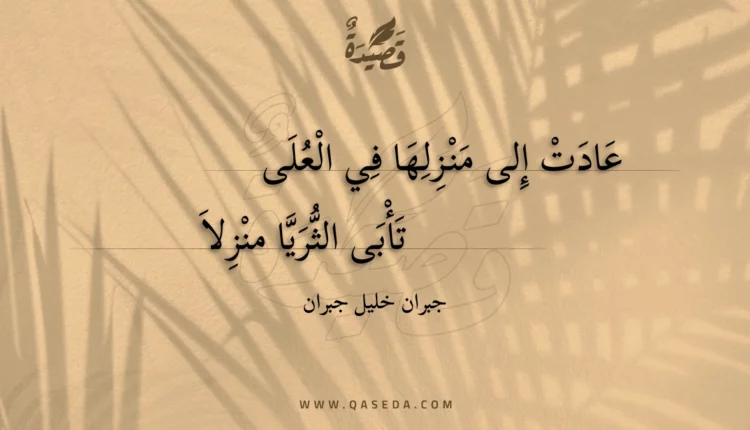 قَصِيدَةٌ
عَادَتْ إِلى مَنْزِلِهَا فِي الْعُلَى
تَأْبَى الثُّرَيَّا منْزِلاَ
جبران خليل جبران
WWW.QASEDA.COM